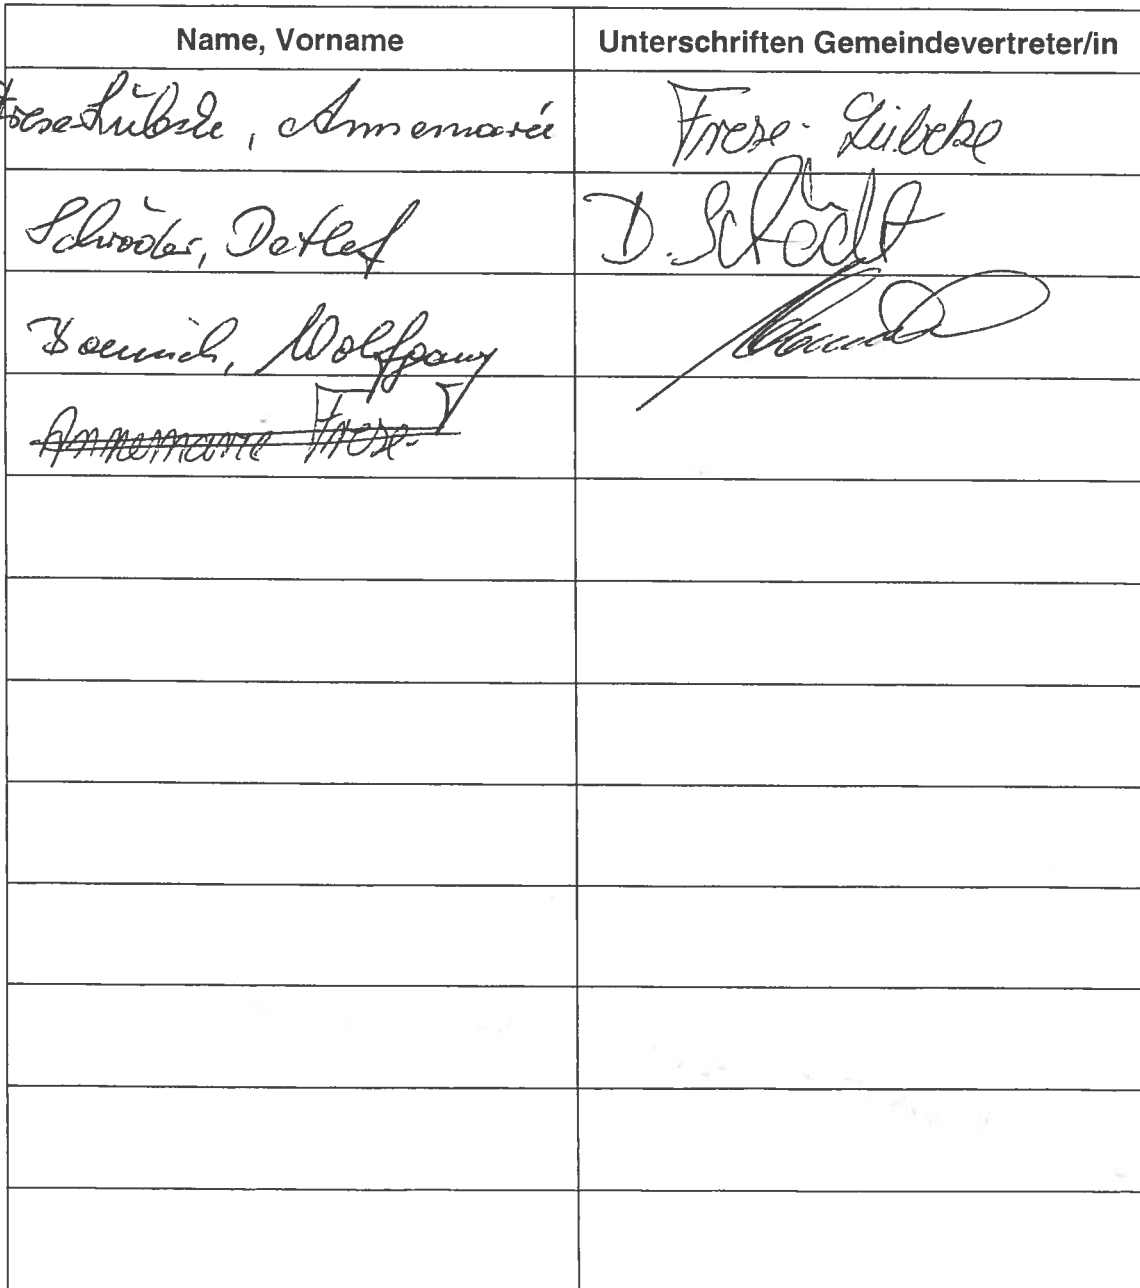 Name, Vorname Unterschriften Gemeindevertreter/in
Frese-Lübcke, Annemarie Frese-Lübcke
Schröder, Detlef D.
Wolfgang
Annemarie Frese-